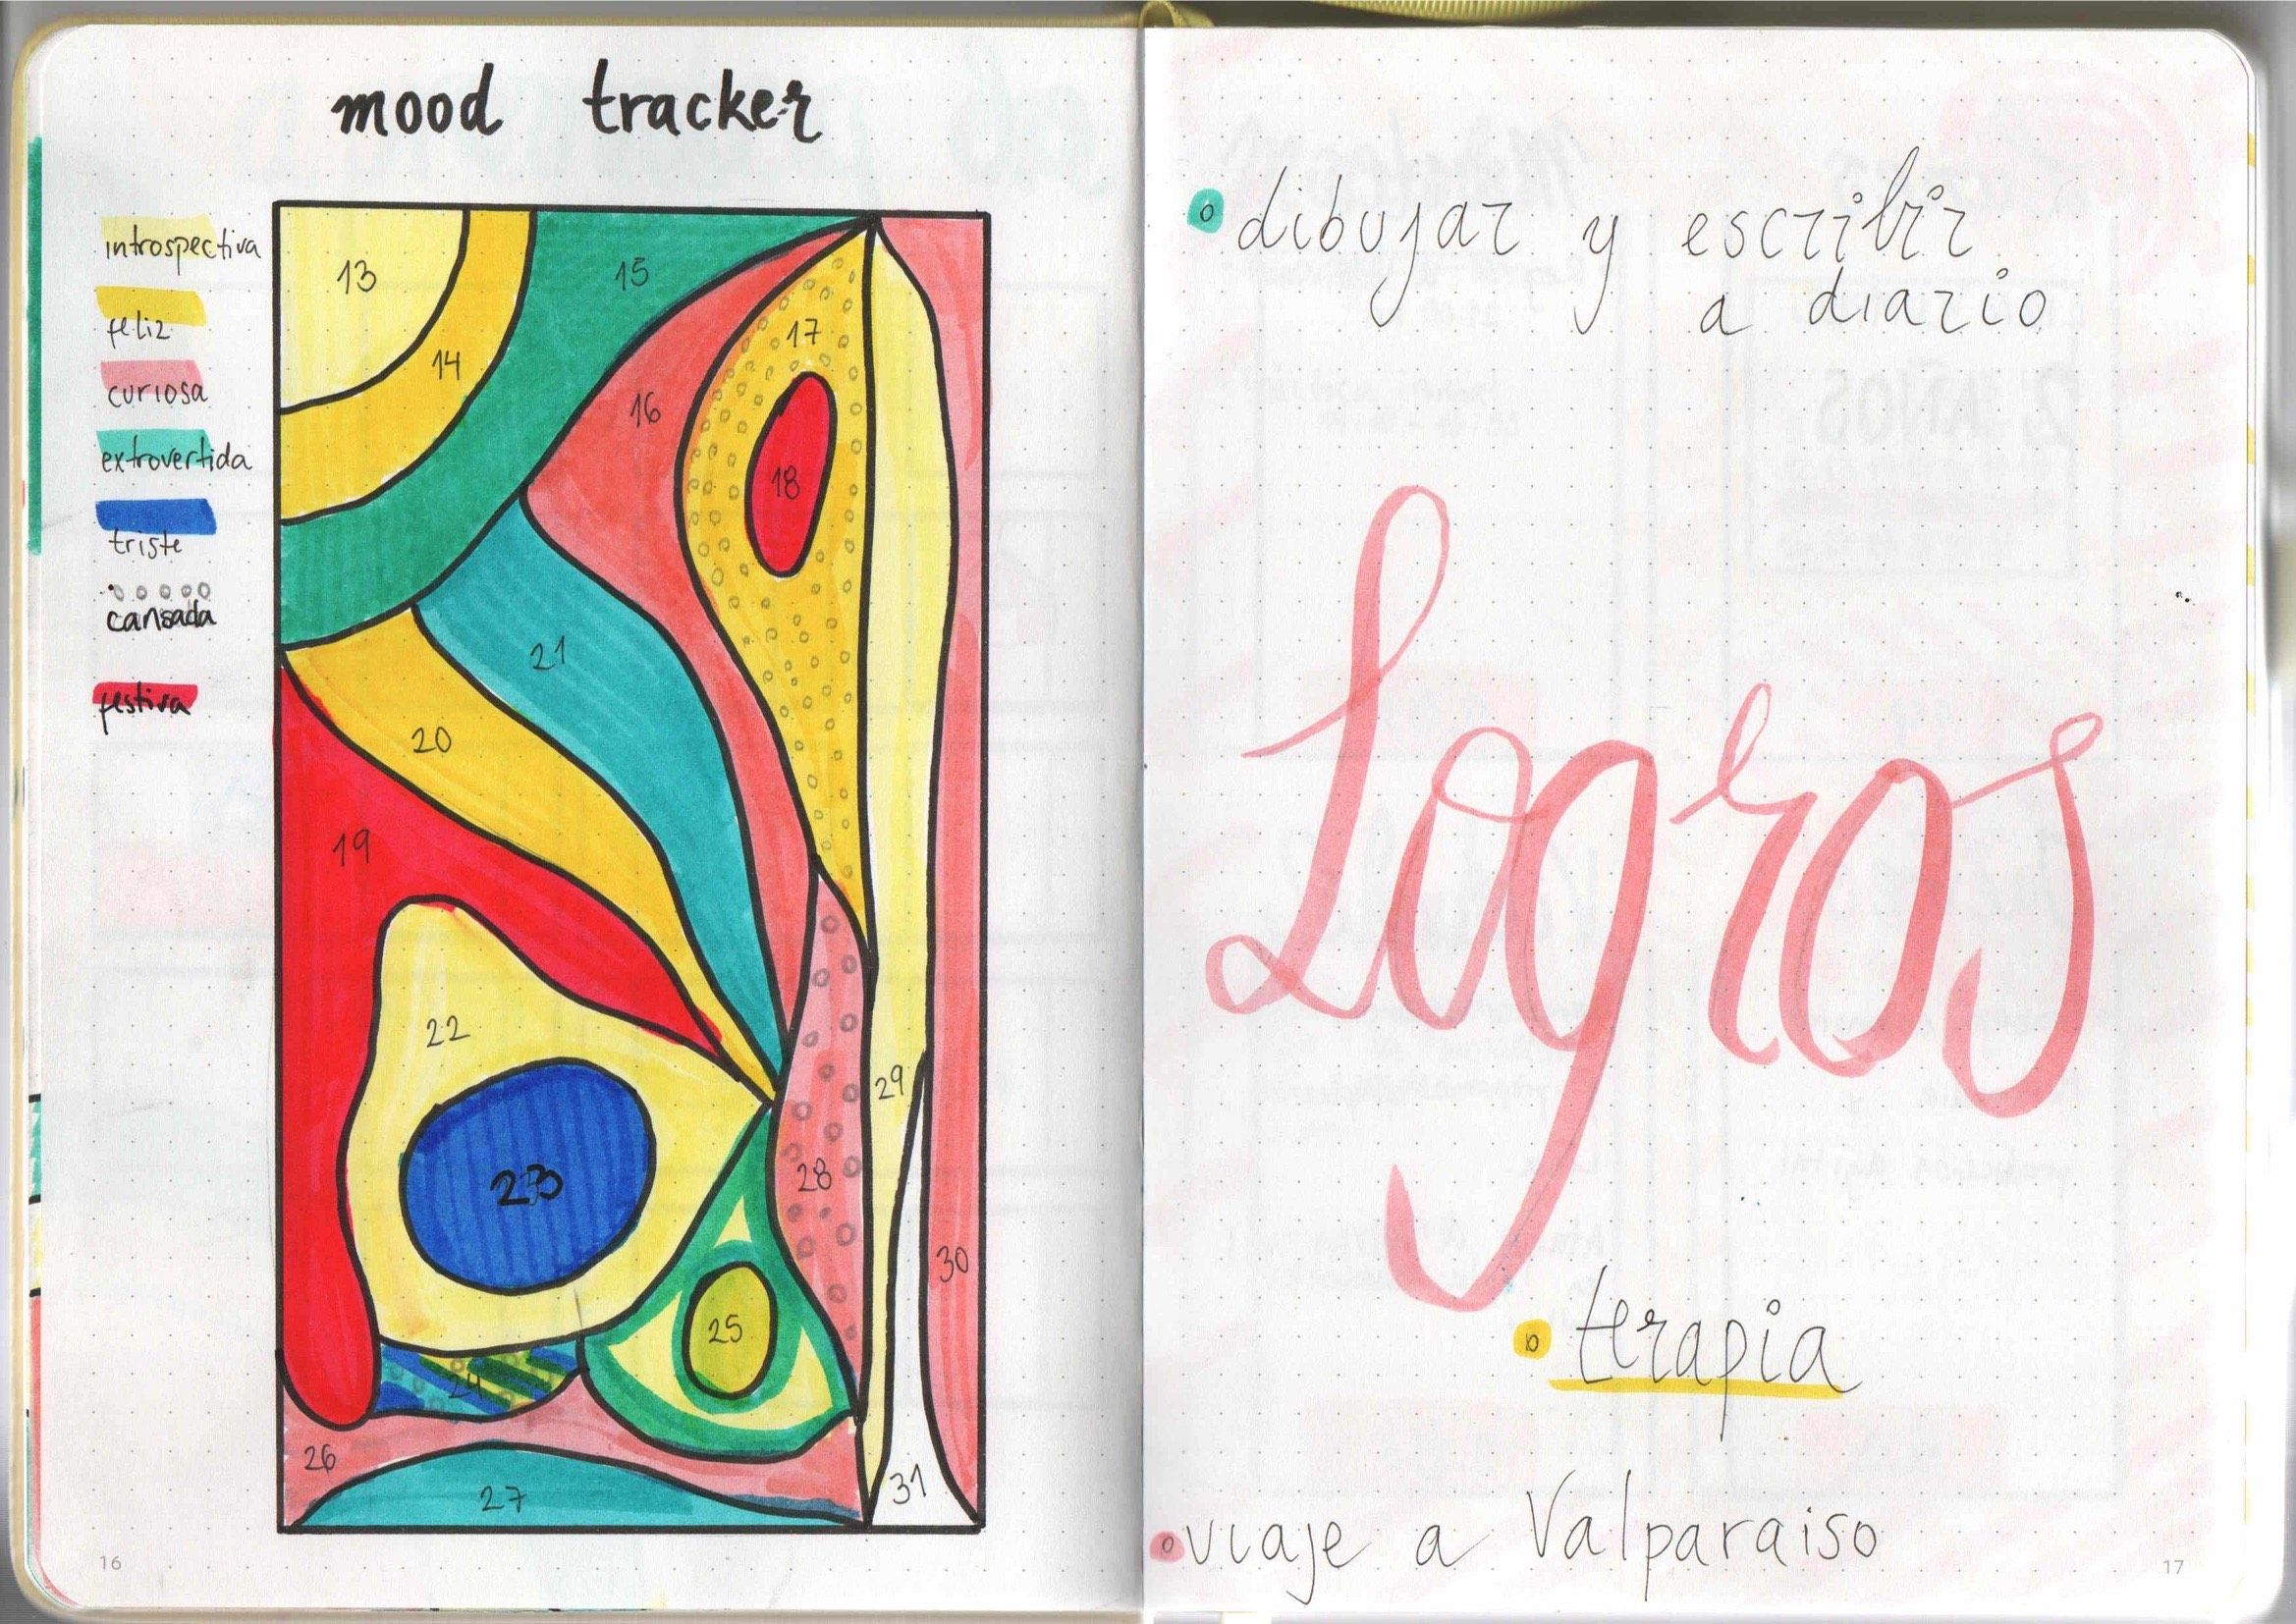 mood tracker
introspectiva
feliz
curiosa
extrovertida
triste
cansada
festiva
13
14
15
16
17
18
21
20
19
22
23
29
28
25
30
24
26
27
31
16
dibujar y escribir
a diario
Logros
terapia
viaje a Valparaiso
17